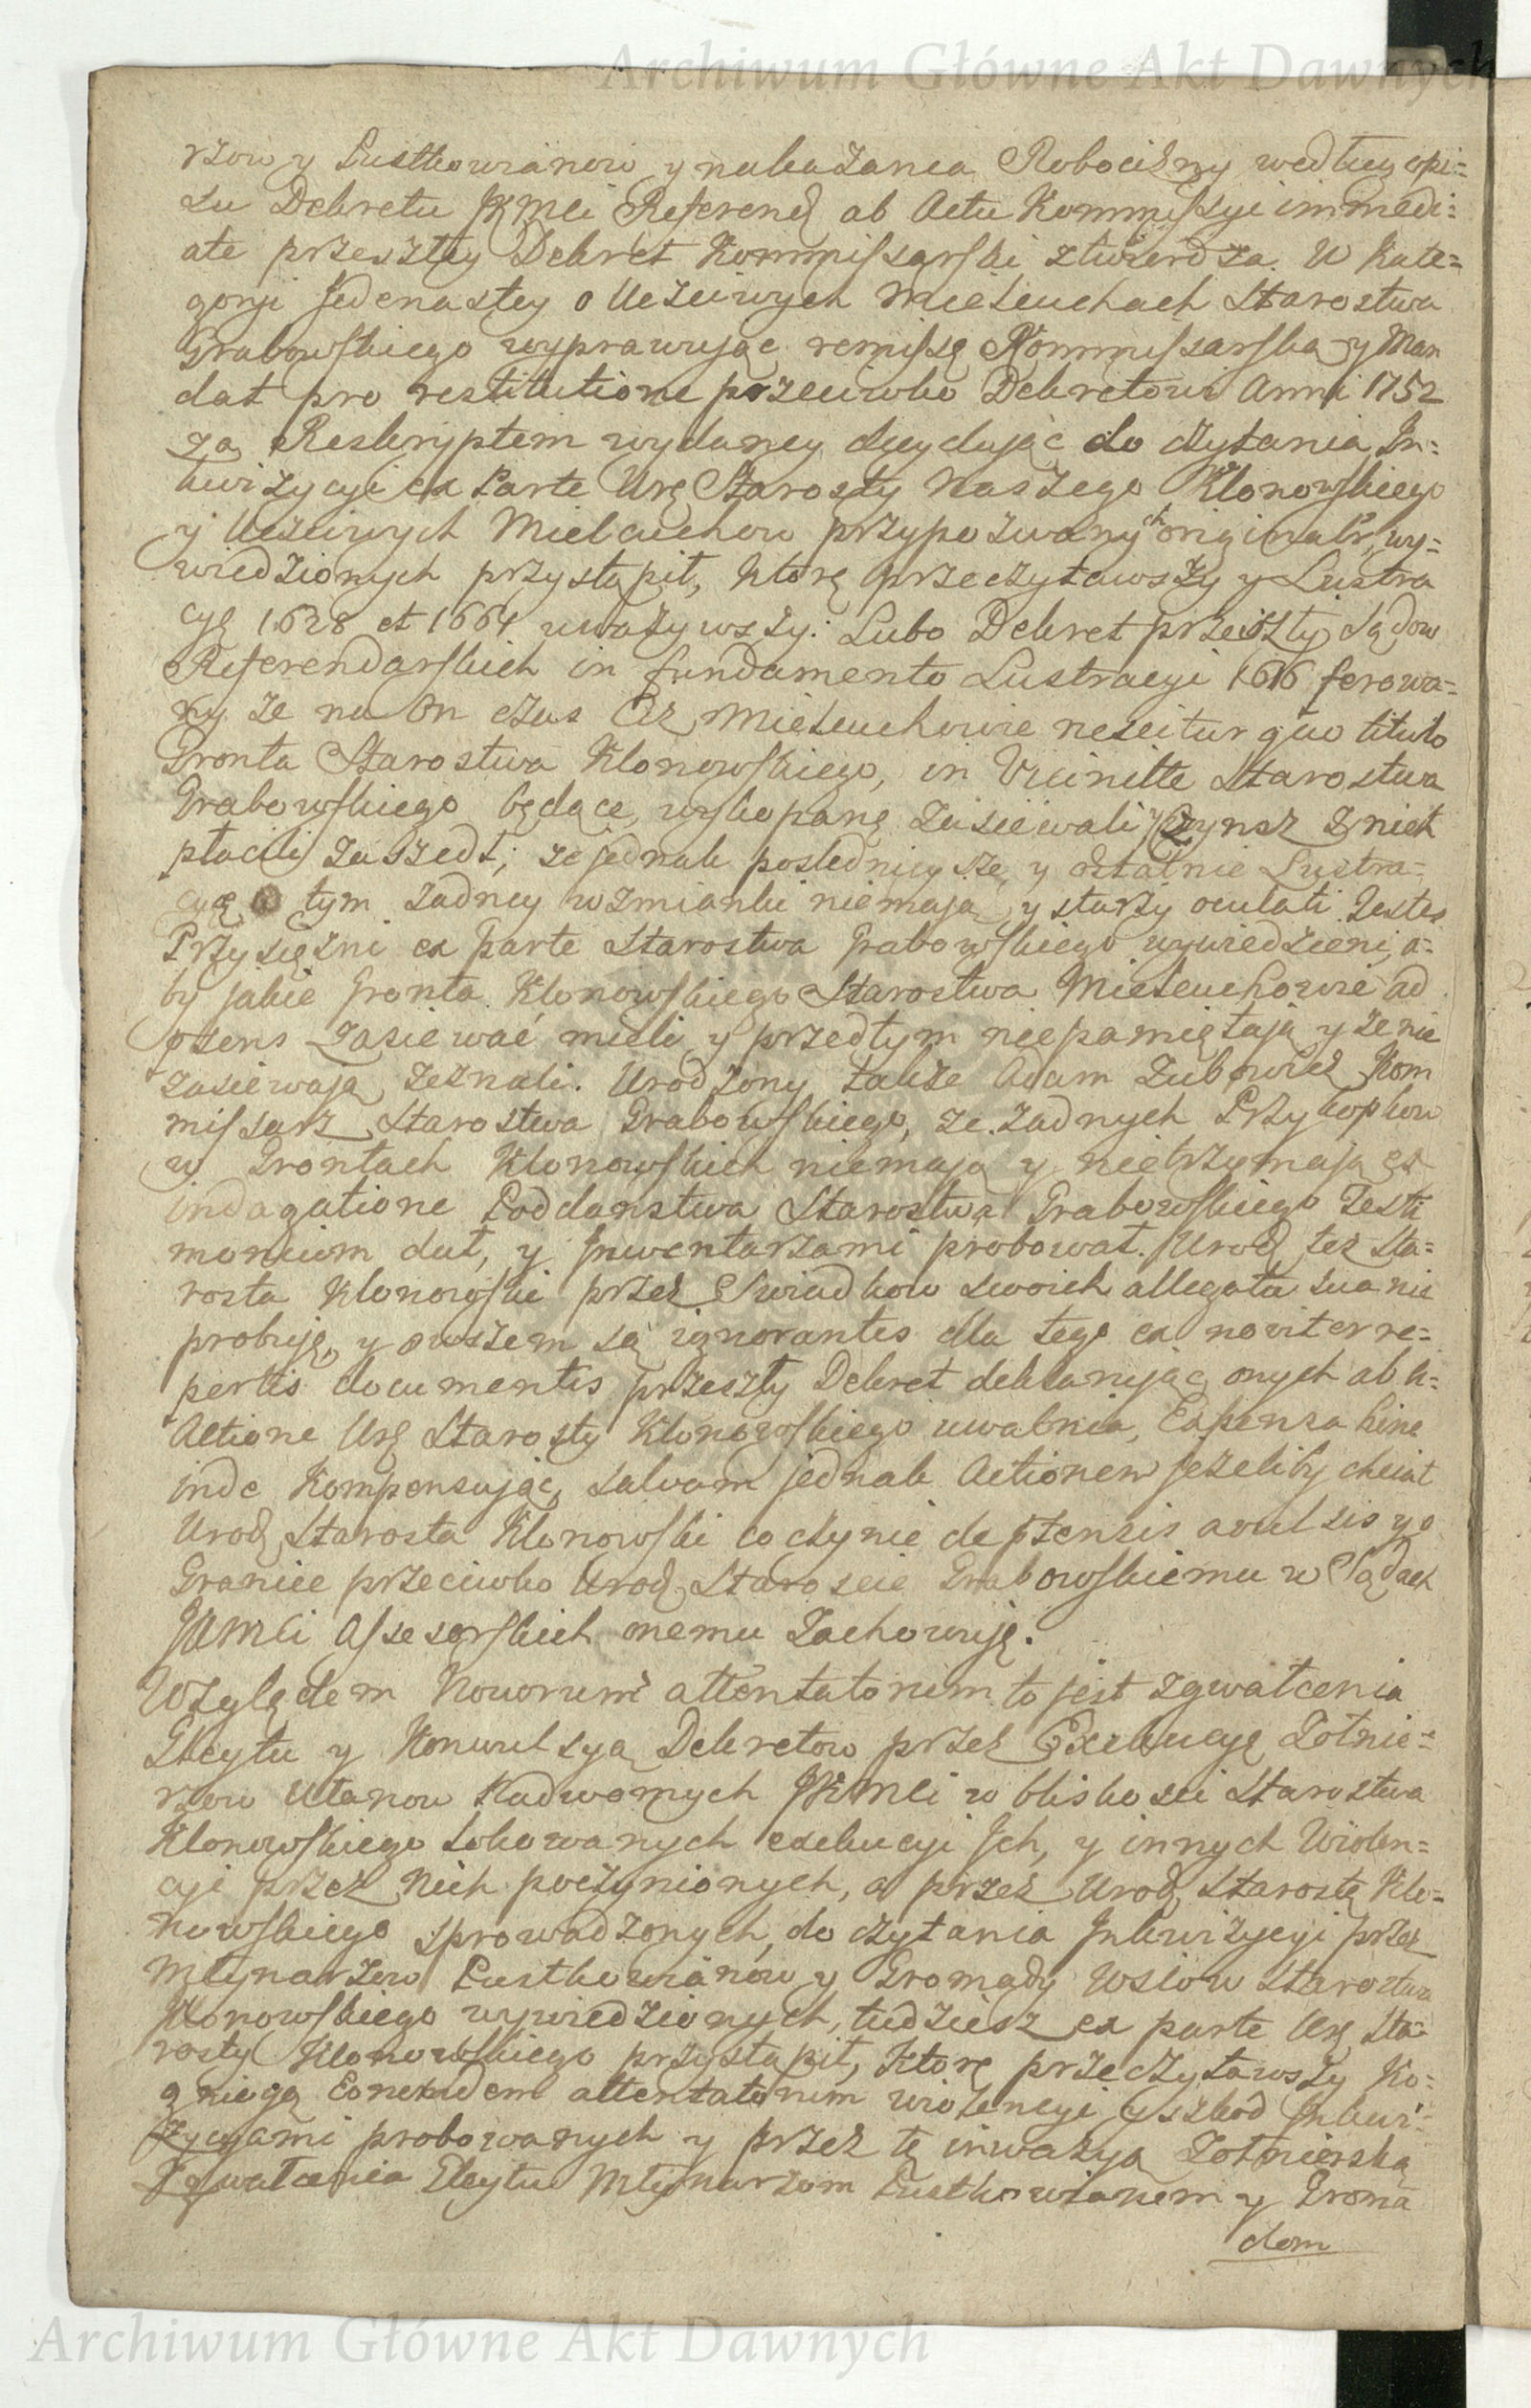 Archiwum Główne Akt Dawnych
rzow y Pustkowianow y nakazania Robocizny według opi=
su Dekretu JKMci Referend ab Actu Kommissyi immedi=
ate przeszłey Dekret Kommissarski ztwierdza. W Kate=
goryi Jedenastey o Uczciwych Mielcuchach Starostwa
Grabowskiego wyprawuiąc remissę Kommissarską y Man
dat pro restitutione przeciwko Dekretowi Anni 1752
za Reskryptem wydaney decyduiąc do czytania In=
kwizycyi ex Parte Urę Starosty Naszego Klonowskiego
y Uczciwych Mielcuchow przypozwanych originalr wy=
wiedzionych przystąpił, ktorę przeczytawszy y Lustra
cyę 1628 et 1664 uważywszy: Lubo Dekret przeszły Sądow
Referendarskich in fundamento Lustracyi 1616 ferowa=
ny że na On czas Ciż Mielcuchowie nescitur quo titulo
Gronta Starostwa Klonowskiego, in Vicinitte Starostwa
Grabowskiego będące, wykopanę zasiewali y Czynsz z nich
płacili zaszedł; że jednak poslednieysze, y ostatnie Lustra=
cyę o tym żadney wzmianki niemaią, y starzy oculati Testes
Przysiężni ex parte Starostwa Grabowskiego wywiedzieni, a=
by jakie Gronta Klonowskiego Starostwa Mielcuchowie ad
psens zasiewać mieli y przedtym niepamiętaią y że nie
zasiewaią, zeznali. Urodzony także Adam Zubowicz Kom
missarz Starostwa Grabowskiego, że żadnych Przykopkow
w Grontach Klonowskich niemaią y nietrzymaią ex
indagatione Poddanstwa Starostwa Grabowskiego Testi
monium dat, y Inwentarzami probował. Urod też Sta=
rosta Klonowski przez Swiadkow swoich allegata sua nie
probuię, y owszem są ignorantes dla tego ex noviter re=
pertis documentis przeszły Dekret deklaruiąc onych ab h=
Actione Urę Starosty Klonowskiego uwalnia, Expensa hinc
inde Kompensuiąc, salvam jednak Actionem jeżeliby chciał
Urod Starosta Klonowski co czynić de ptensis avulsis y o
Granice przeciwko Urod Staroscie Grabowskiemu w Sądach
JKMci Assesorskich onemu Zachowuię.
Względem Novorum attentatorum to jest zgwałcenia
Gleytu y Konwulsyą Dekretow przez Exekucyę Zołnie=
rzow Ułanow Nadwornych JKMci w bliskosci Starostwa
Klonowskiego lokowanych exekucyi Jch, y innych Wiolen=
cyi przez Nich poczynionych, a przez Urod Starostę Klo=
nowskiego sprowadzonych, do czytania Inkwizycyi przez
Młynarzow Pustkowianow y Gromady Wsiow Starostwa
Klonowskiego wywiedzionych, tudziesz ex parte Urę Sta=
rosty Klonowskiego przystąpił, ktorę przeczytawszy Ko=
attentatorum wiolencyi y szkod Inkwi=
zycyami probowanych y przez tę inwazyą Zołnierską
Zgwałcenia Gleytu Młynarzom Pustkowianom y Groma
dom
Archiwum Główne Akt Dawnych